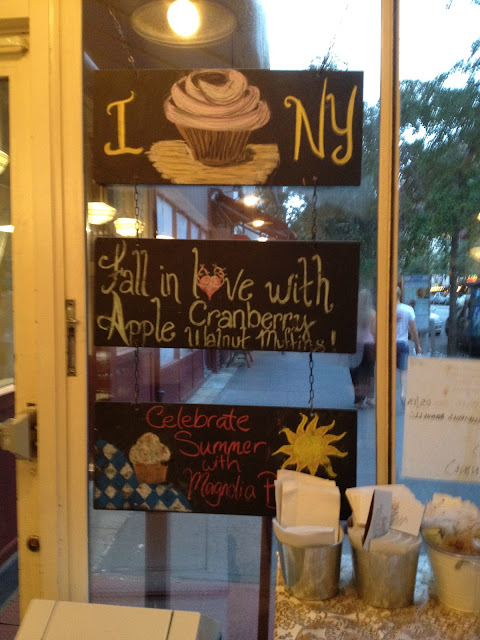 I NY
Fall in love with
Apple Cranberry
Walnut Muffins!
Celebrate
Summer
with
Magnolia